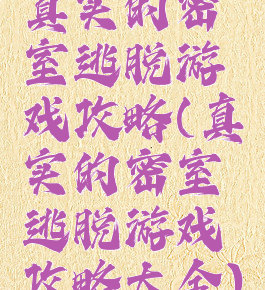 真实的密
室逃脱游
戏攻略(真
实的密室
逃脱游戏
攻略大全)